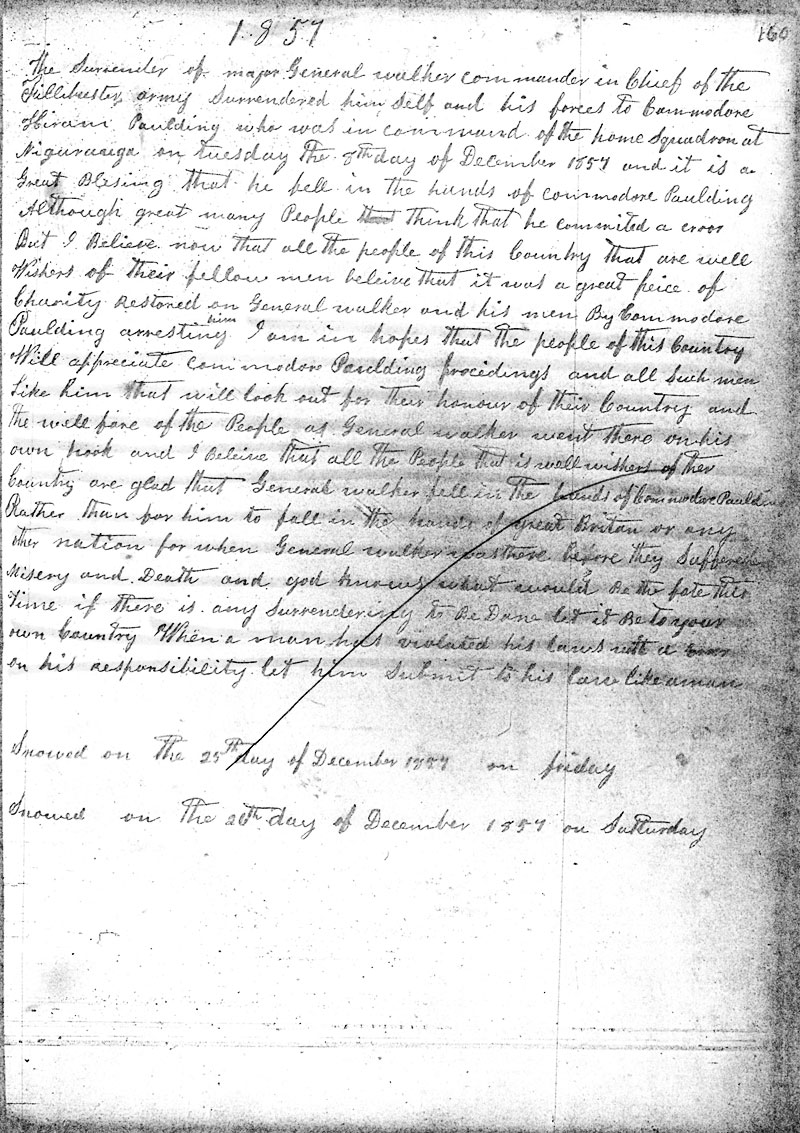 1857
160
The Surrender of major General walker commander in Chief of the
Fillibuster army Surrendered him Self and his forces to Commodore
Hiram Paulding who was in command of the home Squadron at
Niguraauga on tuesday the 8th day of December 1857 and it is a
Great Blesing that he fell in the hands of commodore Paulding
Although great many People think that he commited a eroor
But I Believe now that all the people of this Country that are well
Wishers of their fellow men beleive that it was a great peice of
Charity Restored on General walker and his men By Commodore
Paulding arresting him I am in hopes that the people of this Country
Will appreciate commodore Paulding procidings and all Such men
Like him that will look out for their honour of their Country and
the well fare of the People as General walker went there on his
own hook and I Beleive that all the People that is well wishers of ther
Country are glad that General walker fell in the hands of Commodore Paulding
Rather than for him to fall in the hands of great Britan or any
other nation for when General walker was there before they Suffered
Misery and Death and god knows what would Be the fate this
Time if there is any Surrendering to Be Done let it Be to your
own Country When a man has violated his laws with a
on his Responsibility let him Submit to his law like a man
Snowed on the 25th day of December 1857 on friday
Snowed on the 26th day of December 1857 on Satturday